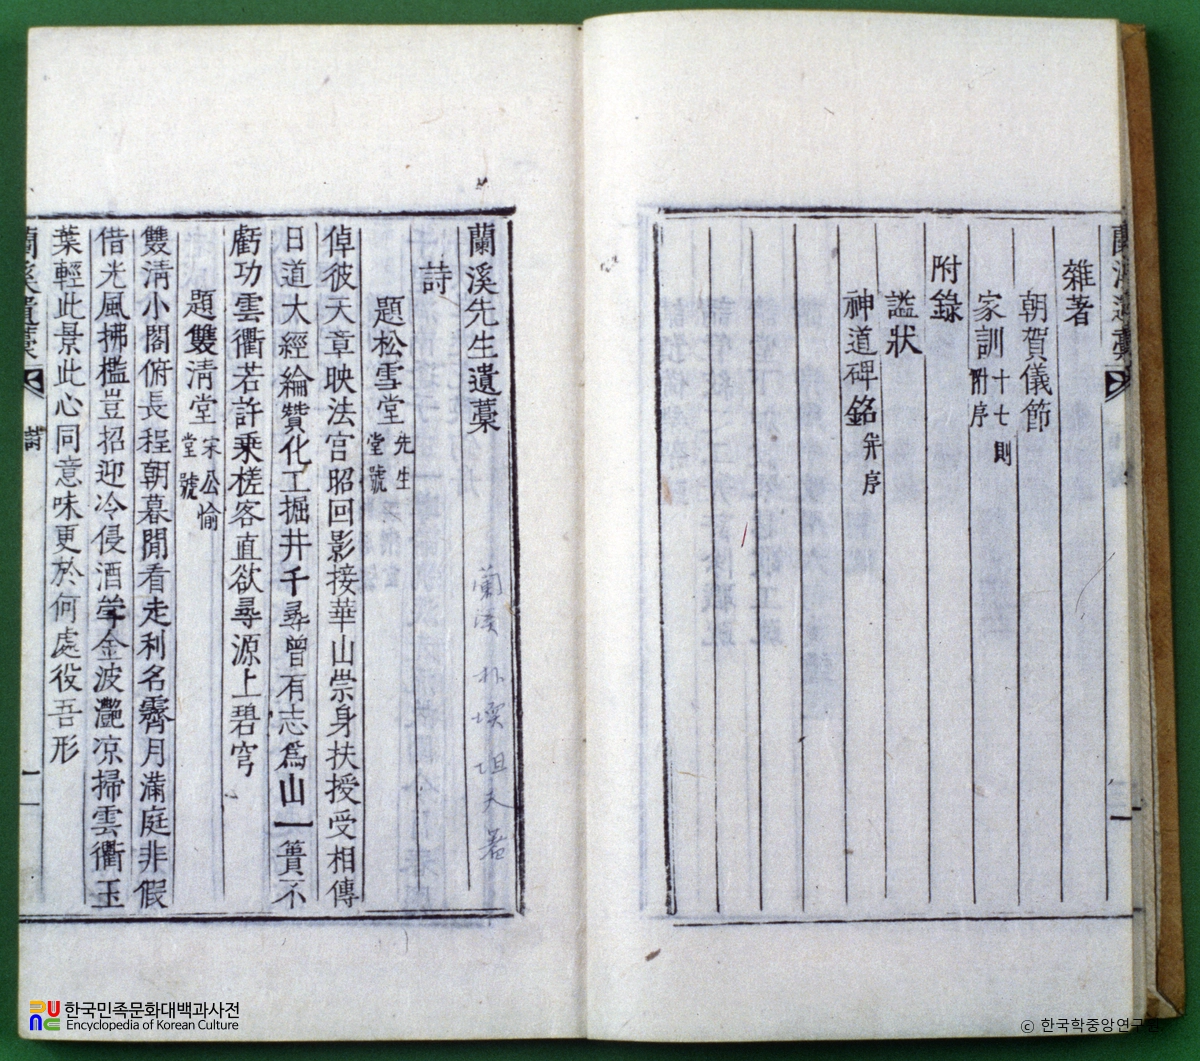 雜著
朝賀儀節
家訓 十七則 附序
附錄
謚狀
神道碑銘 并序
蘭溪先生遺藁
詩
題松雪堂 先生堂號
倬彼天章映法宮昭回影接華山崇身扶授受相傳
日道大經綸贊化工掘井千尋曾有志爲山一簣不
虧功雲衢若許乘槎客直欲尋源上碧穹
題雙清堂 宋公愉堂號
雙淸小閣俯長程朝暮閒看走利名霽月滿庭非假
借光風拂檻豈招迎冷侵酒斝金波灩凉掃雲衢玉
葉輕此景此心同意味更於何處役吾形
蘭溪遺藁
詩
一
한국민족문화대백과사전
Encyclopedia of Korean Culture
© 한국학중앙연구원